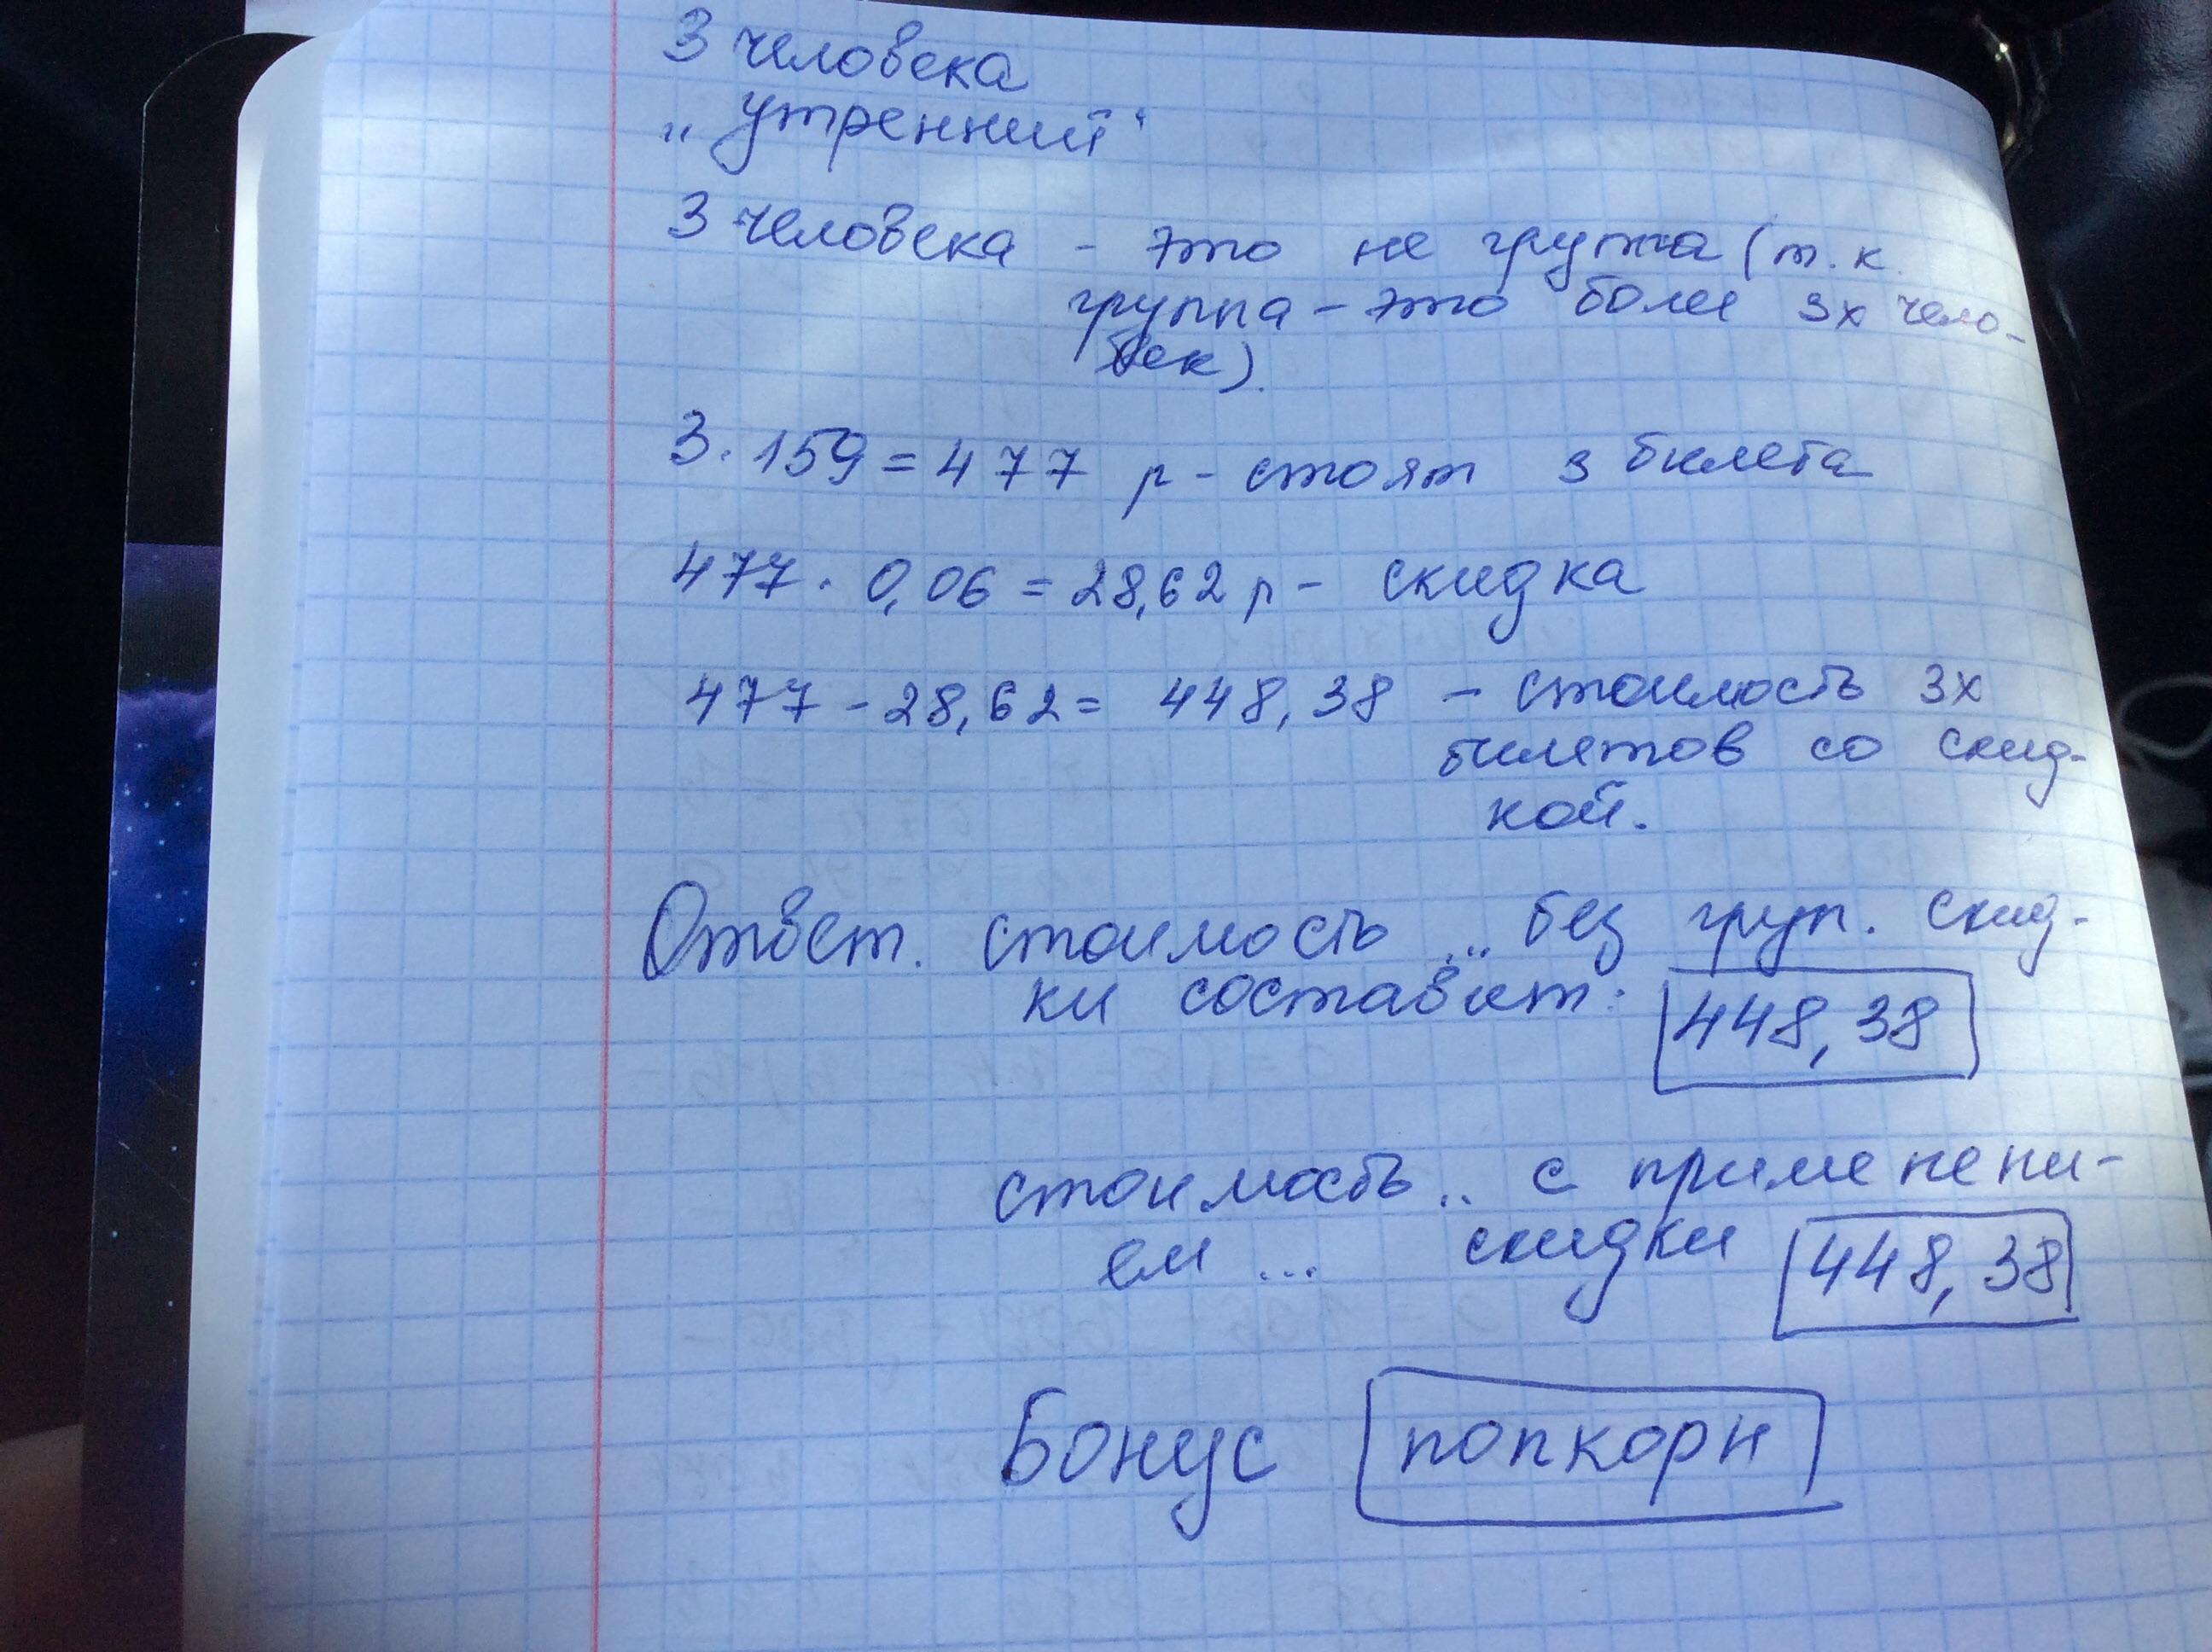 3 человека
„утренний“
3 человека - это не группа (т.к.
группа - это более 3х чело-
век).
3 · 159 = 477 р - стоят 3 билета
477 · 0,06 = 28,62 р - скидка
477 - 28,62 = 448,38 - стоимость 3х
билетов со скид-
кой.
Ответ. стоимость ... без груп. скид-
ки составит: 448,38
стоимость .. с применени-
ем ... скидки 448,38
Бонус попкорн